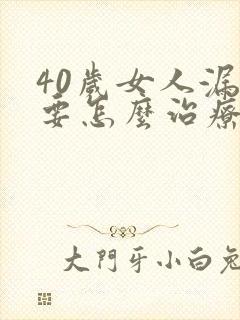 40歲女人漏
要怎麼治療
大門牙小白兔